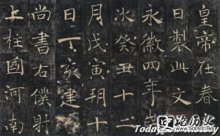 皇帝在春
日製此文
永徽四年
次癸丑十二
月戊寅朔十
日丁亥建
尚書右僕射
上柱國河南